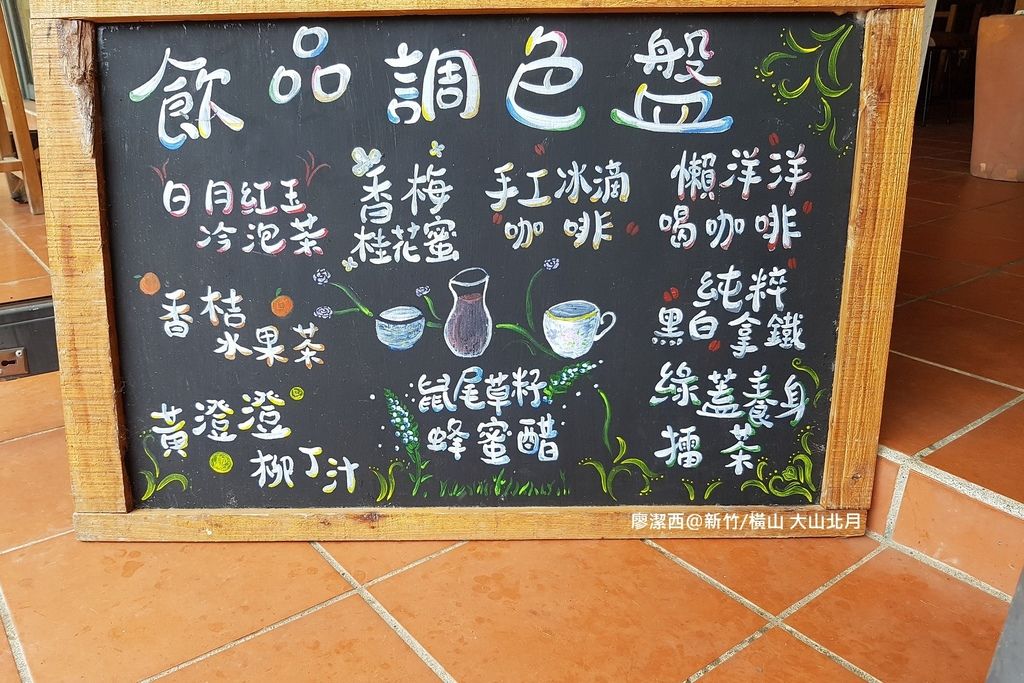 飲品調色盤
日月紅玉
冷泡茶
香梅
桂花蜜
手工冰滴
咖啡
懶洋洋
喝咖啡
香桔
水果茶
純粹
黑白拿鐵
黃澄澄
柳丁汁
鼠尾草籽
蜂蜜醋
綠蓋養身
擂茶
廖潔西@新竹/橫山 大山北月